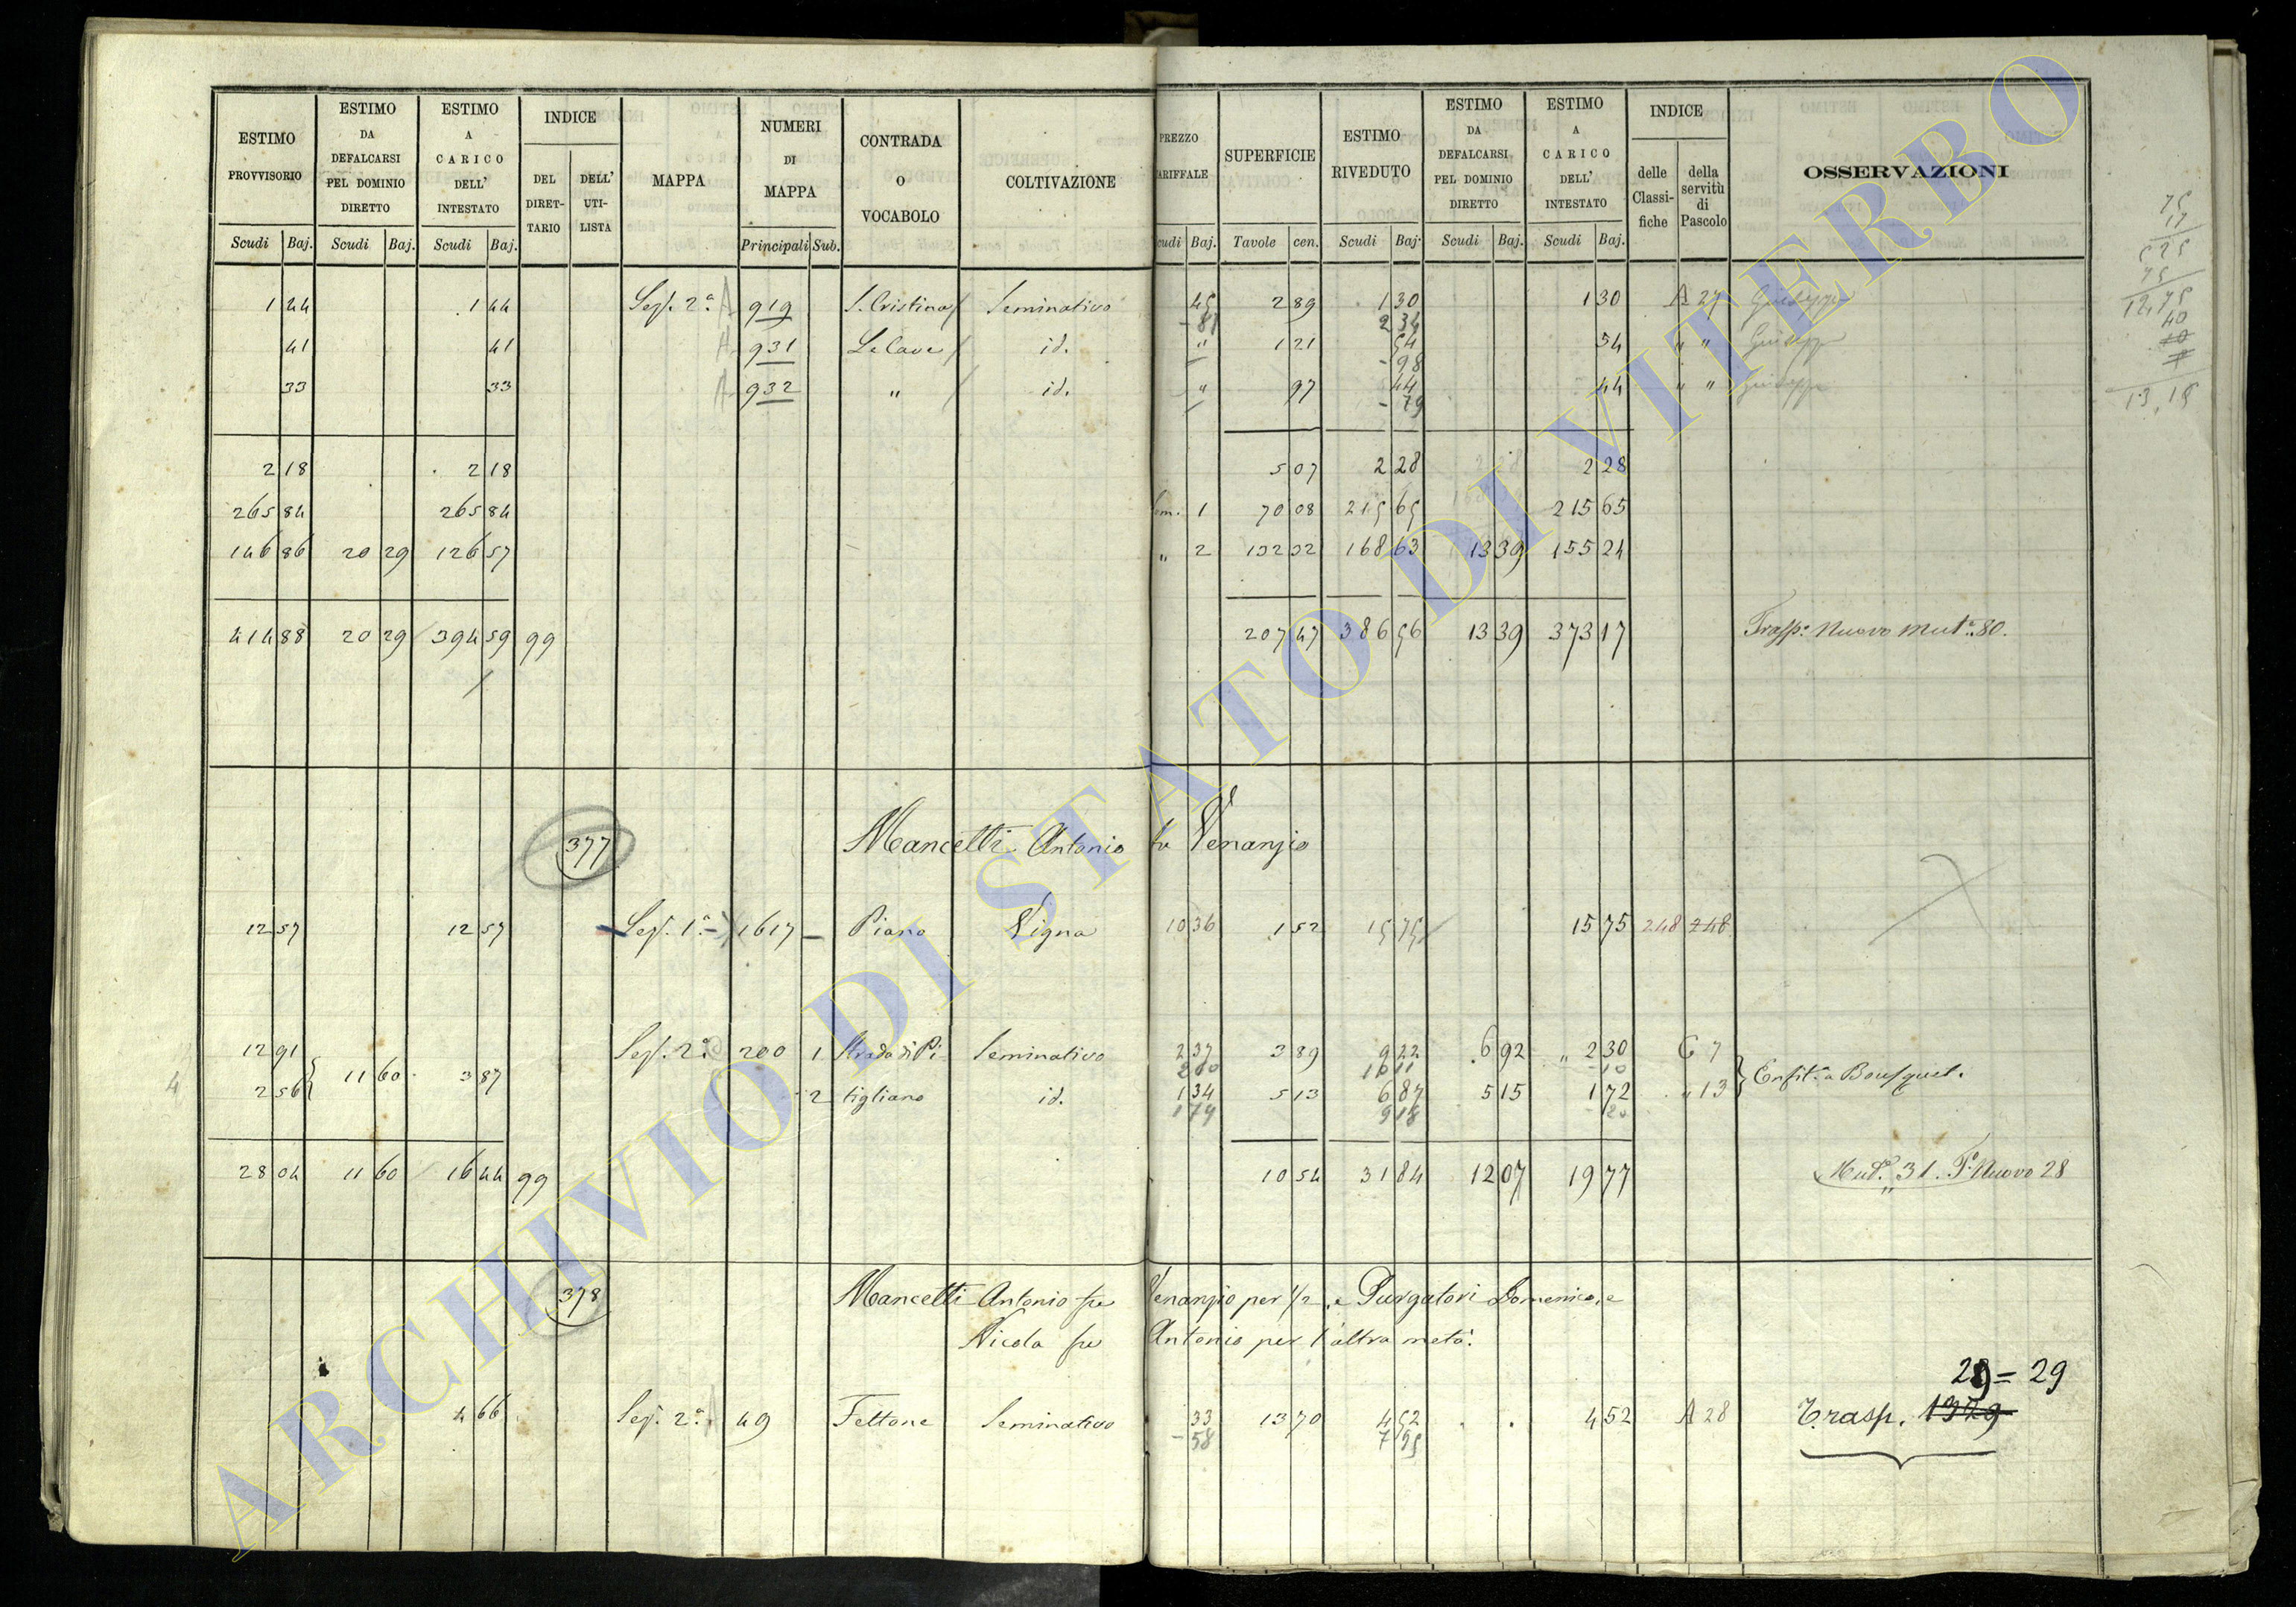 ESTIMO PROVVISORIO Scudi Baj. | ESTIMO DA DEFALCARSI PEL DOMINIO DIRETTO Scudi Baj. | ESTIMO A CARICO DELL' INTESTATO Scudi Baj. | INDICE DEL DIRETTARIO DELL' UTILISTA | MAPPA | NUMERI DI MAPPA Principali Sub. | CONTRADA O VOCABOLO | COLTIVAZIONE | PREZZO ARIFFALE cudi Baj. | SUPERFICIE Tavole cen. | ESTIMO RIVEDUTO Scudi Baj. | ESTIMO DA DEFALCARSI PEL DOMINIO DIRETTO Scudi Baj. | ESTIMO A CARICO DELL' INTESTATO Scudi Baj. | INDICE delle Classifiche della servitù di Pascolo | OSSERVAZIONI
1 44 1 44 Sez. 2ª A 919 S. Cristina Seminativo 45 2 89 1 30 1 30 A 27 Giuseppe
- 81 2 34
41 41 A 931 Le Cave id. " 1 21 54 54 " " Giuseppe
- 98
33 33 A 932 " id. " 97 44 44 " " Giuseppe
- 79
2 18 2 18 5 07 2 28 2 28
265 84 265 84 1 70 08 215 65 215 65
146 86 20 29 126 57 " 2 132 32 168 63 13 39 155 24
414 88 20 29 394 59 99 207 47 386 56 13 39 373 17 Trasp. Nuovo Mutª 80.
377 Mancetti Antonio fu Venanzio
12 57 12 57 Sez. 1ª 1617 Piano Vigna 10 36 1 52 15 75 15 75 248 248
12 91 Sez. 2ª 200 1 Strada di Pi- Seminativo 2 37 3 89 9 22 6 92 " 2 30 C 7
11 60 3 87 Enfit. a Bousquet.
2 56 2 tigliano id. 1 34 5 13 6 87 5 15 1 72 " 13
1 79 9 18
28 04 11 60 16 44 99 10 54 31 84 12 07 19 77 Mutª 31. Fº Nuovo 28
378 Mancetti Antonio fu Venanzio per 1/2, e Purgatori Domenico, e
Nicola fu Antonio per l'altra metà.
29 = 29
4 66 Sez. 2ª 49 Fettone Seminativo 33 13 70 4 52 4 52 A 28 Trasp. 1379
- 58 7 95
75
17
525
75
12,75
40
13,15
4
ARCHIVIO DI STATO DI VITERBO